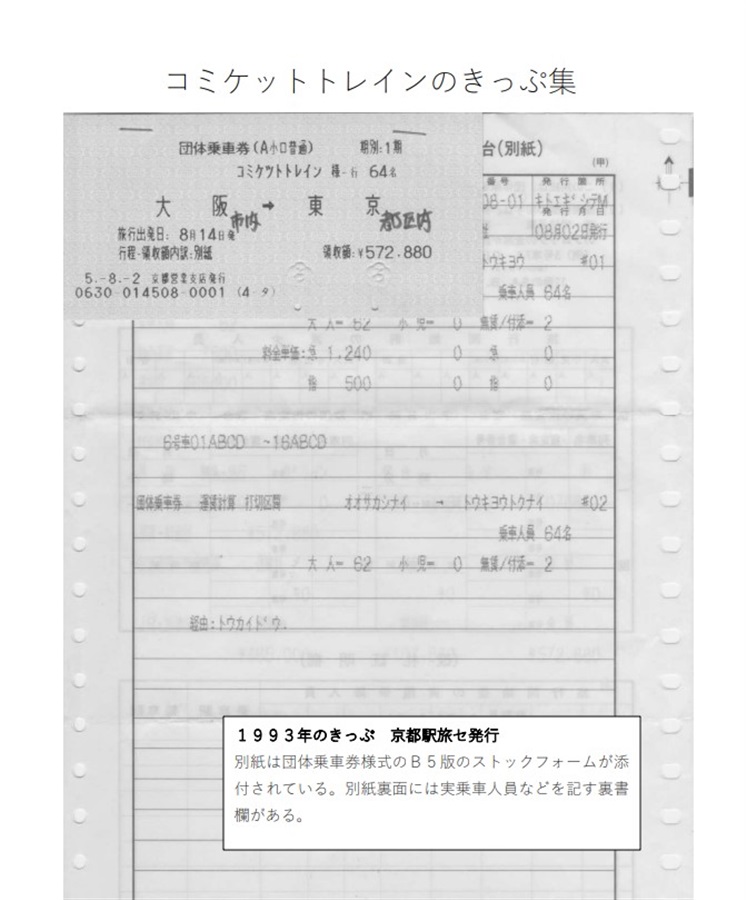 コミケットトレインのきっぷ集
団体乗車券(A小口普通) 期別:1期
コミケットトレイン 種-行 64名
大 阪市内 → 東 京都区内
旅行出発日: 8月14日発
行程・領収額内訳:別紙 領収額:¥572.880
5.-8.-2 京都営業支店発行
0630-014508-0001 (4-タ)
台(別紙)
(甲)
番号 発行箇所
08-01
発行月日
08月02日発行
トウキヨウ #01
乗車人員 64名
大 人= 62 小 児= 0 無賃/付添= 2
料金単価:急 1,240 0 急 0
指 500 0 指 0
6号車01ABCD ~16ABCD
団体乗車券 運賃計算 打切区間 オオサカシナイ → トウキヨウトクナイ #02
乗車人員 64名
大 人= 62 小 児= 0 無賃/付添= 2
経由:トウカイドウ.
1993年のきっぷ 京都駅旅セ発行
別紙は団体乗車券様式のB5版のストックフォームが添
付されている。別紙裏面には実乗車人員などを記す裏書
欄がある。